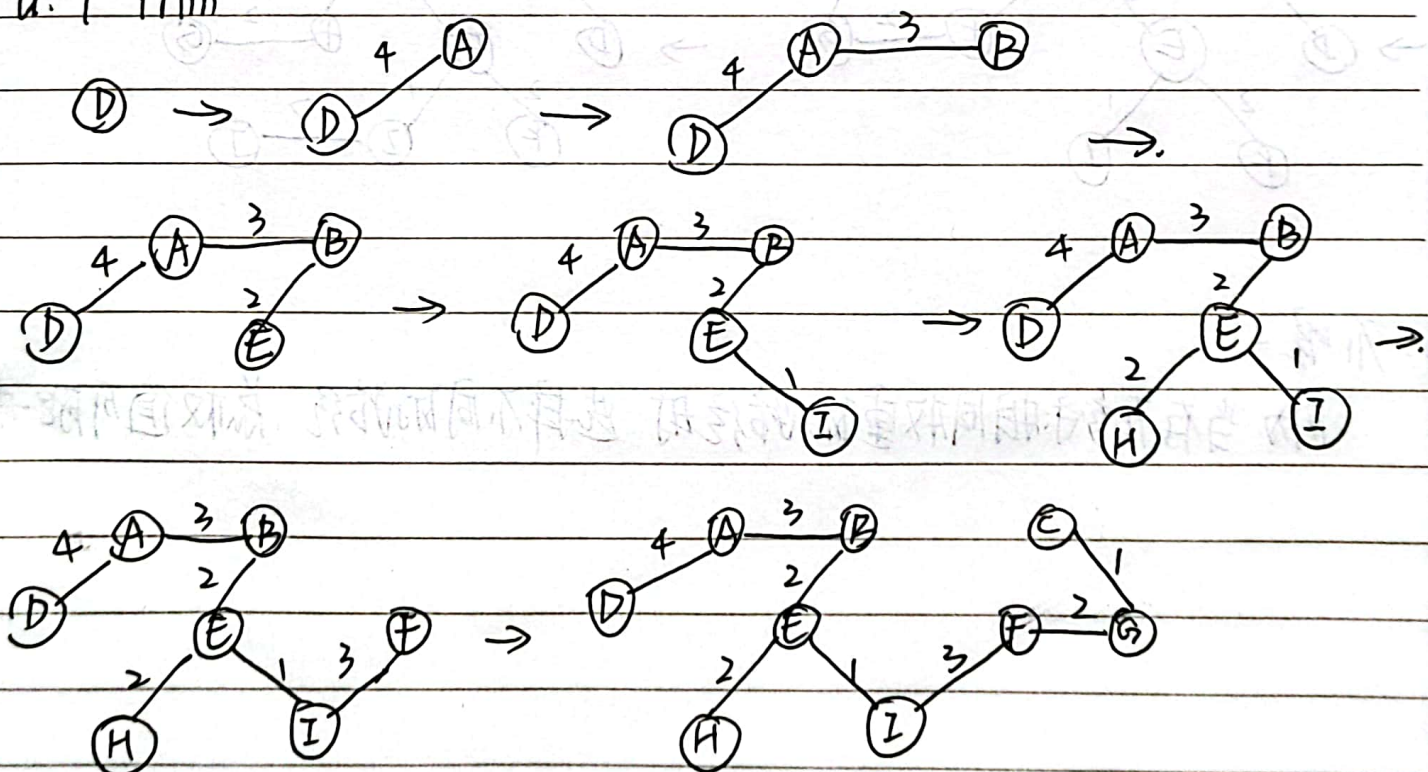 D → D 4 A → D 4 A 3 B →.
D 4 A 3 B 2 E → D 4 A 3 B 2 E 1 I → D 4 A 3 B 2 E 2 H 1 I →.
D 4 A 3 B 2 E 2 H 1 I 3 F → D 4 A 3 B 2 E 2 H 1 I 3 F 2 G 1 C